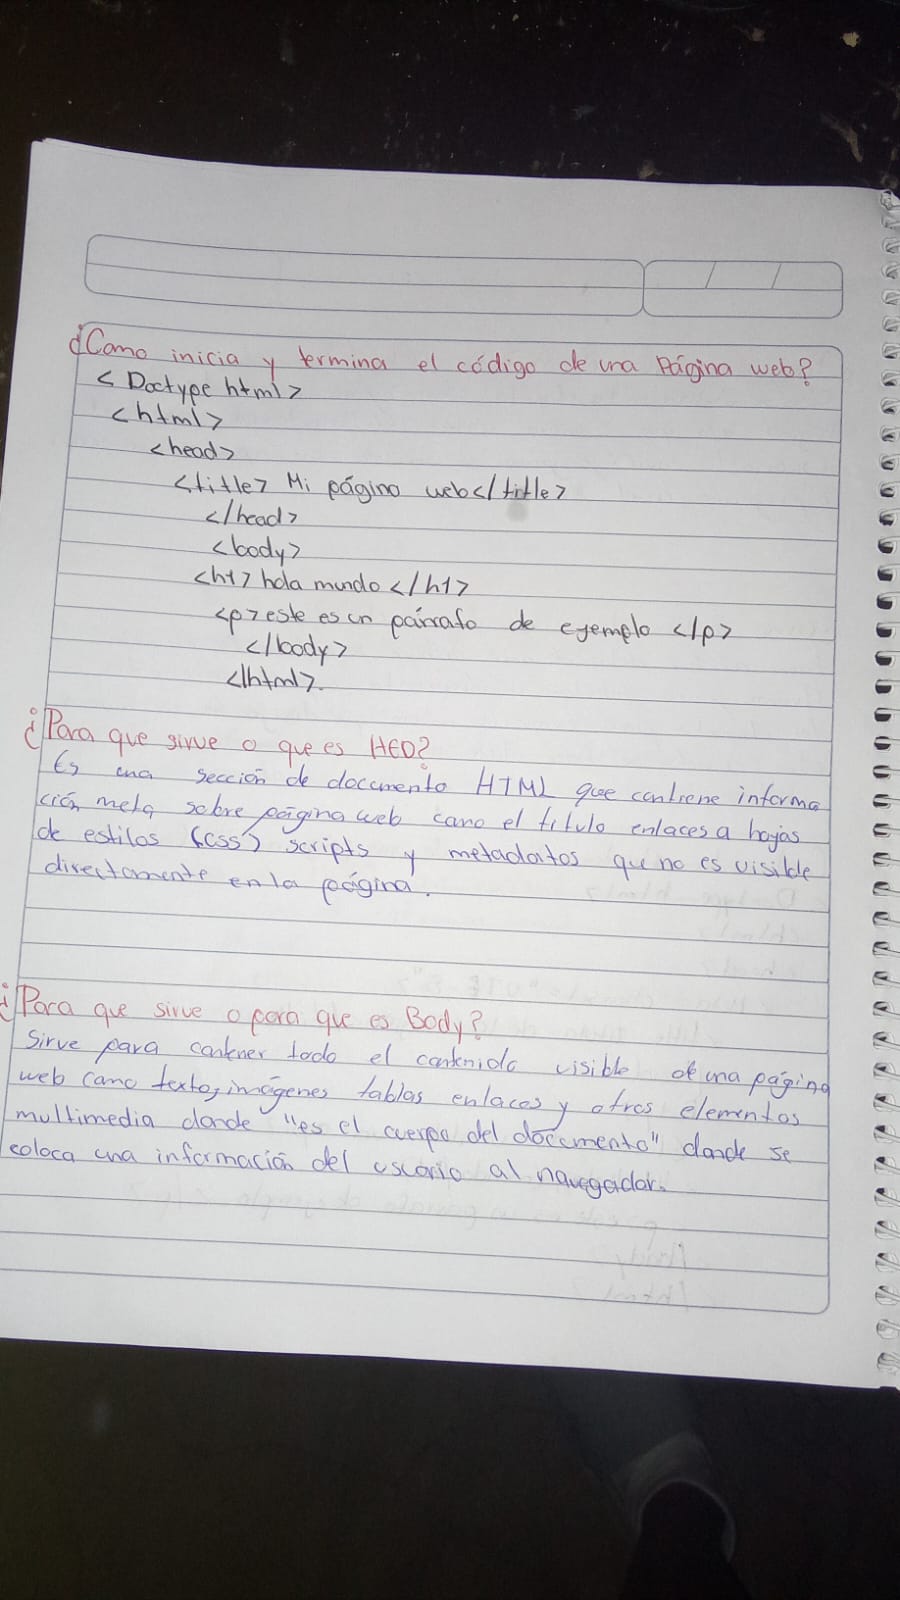 ¿Como inicia y termina el código de una Página web?
< Doctype html>
<html>
<head>
<title> Mi página web</title>
</head>
<body>
<h1> hola mundo </h1>
<p> este es un párrafo de ejemplo </p>
</body>
</html>.
¿Para que sirve o que es HED?
Es una sección de documento HTML que contiene informa
ción meta sobre página web como el titulo enlaces a hojas
de estilos (css) scripts y metadatos que no es visible
directamente en la página.
¿Para que sirve o para que es Body?
Sirve para contener todo el contenido visible de una página
web como texto, imágenes tablas enlaces y otros elementos
multimedia donde "es el cuerpo del documento" donde se
coloca una información del usuario al navegador.